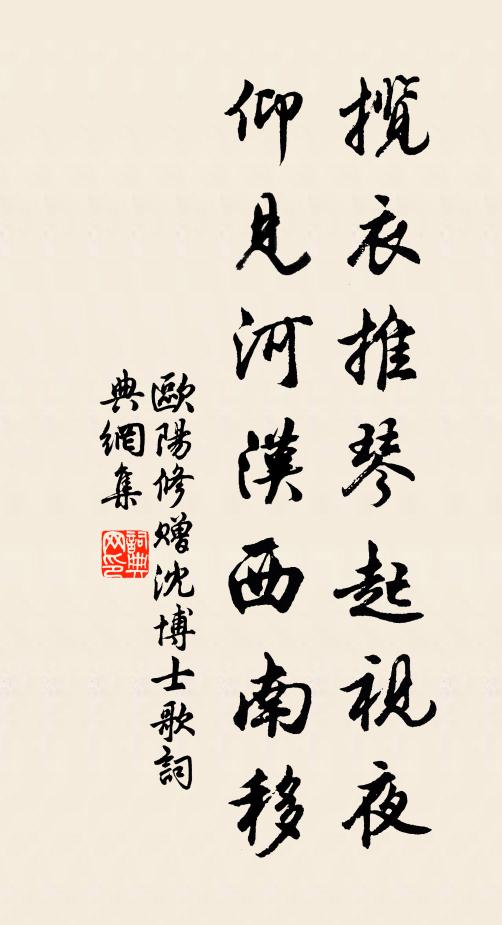 攬衣推琴起視夜
仰見河漢西南移
歐陽修贈沈博士歌詞
典網集
詞典网印